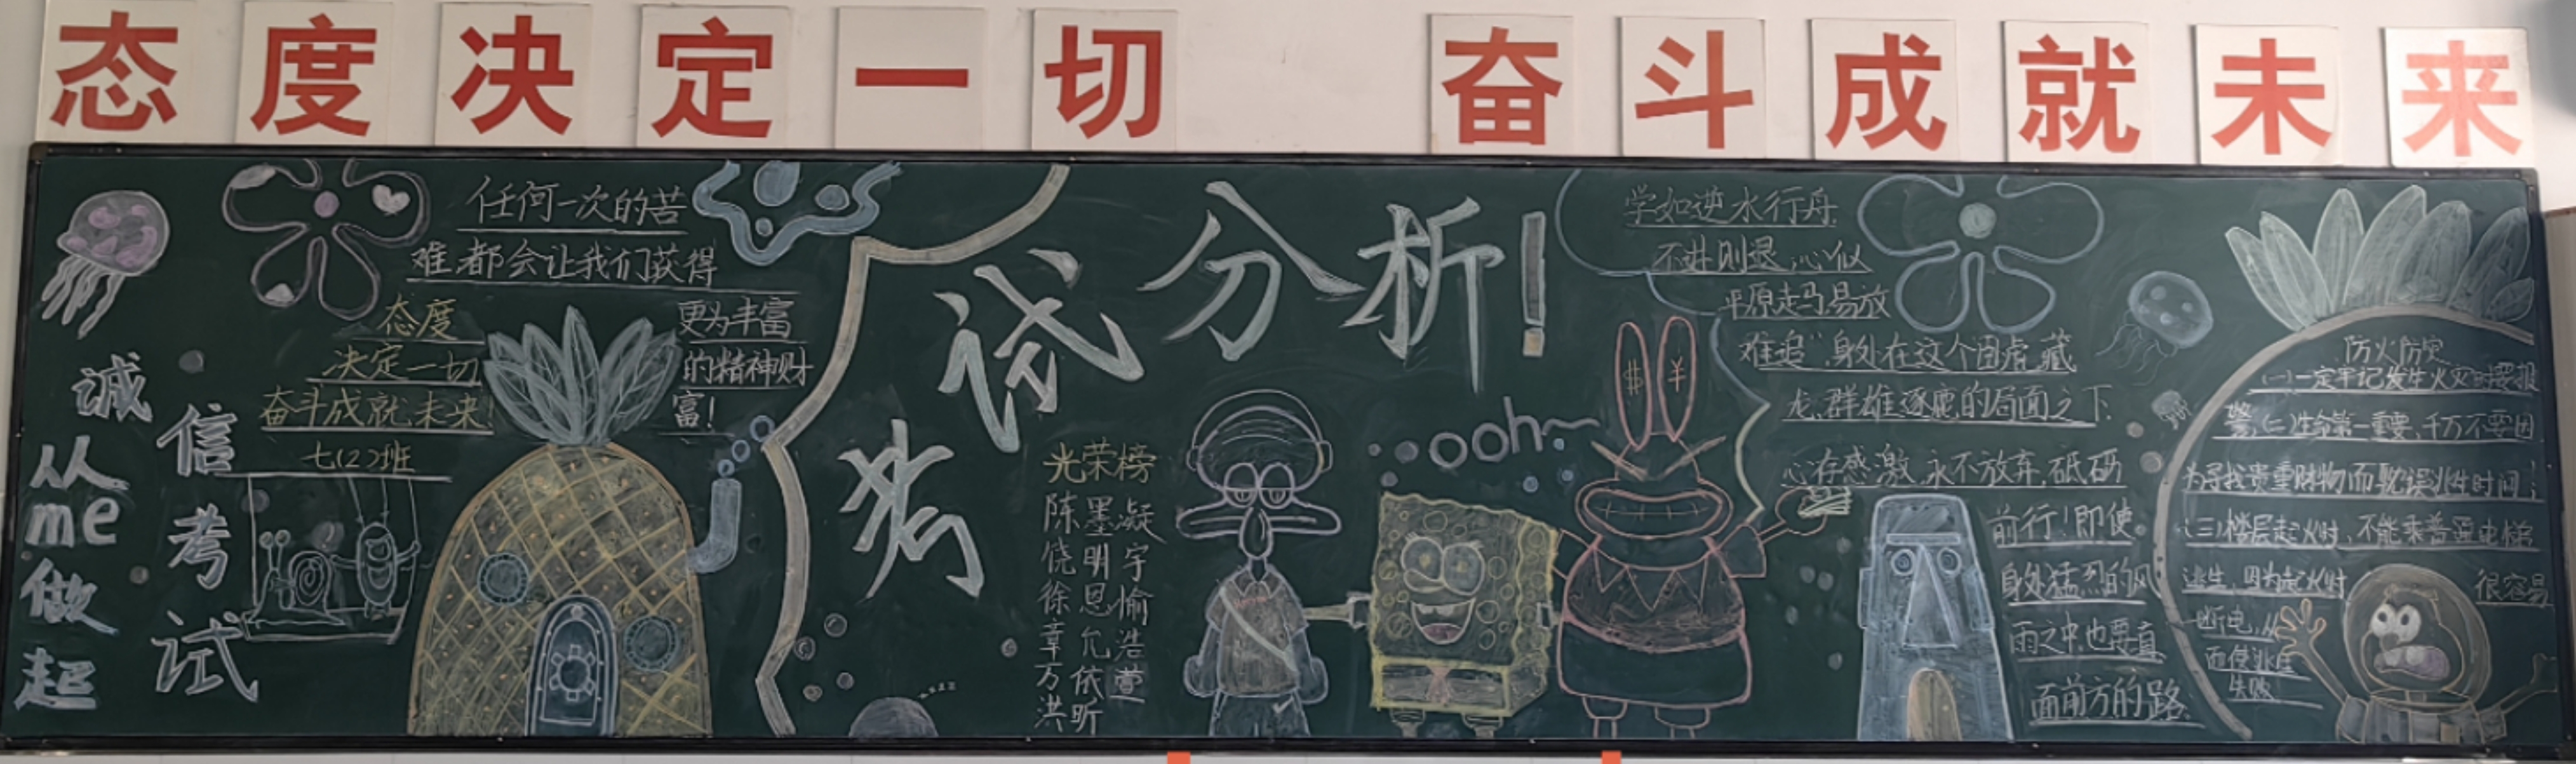 态度决定一切 奋斗成就未来
诚信考试
从me做起
任何一次的苦
难都会让我们获得
更为丰富
的精神财
富!
态度
决定一切
奋斗成就未来!
七(2)班
考试分析!
光荣榜
陈墨凝
饶明宇
徐恩愉
章允浩
万依萱
洪昕
zzz
ooh~
$ ¥
学如逆水行舟
不进则退,心似
平原走马易放
难追"身处在这个卧虎藏
龙,群雄逐鹿的局面之下
心存感激,永不放弃,砥砺
前行!即使
身处猛烈的风
雨之中,也要直
面前方的路.
防火防灾
(一)一定牢记发生火灾时要报
警,(二)生命第一重要,千万不要因
为寻找贵重财物而耽误逃生时间;
(三)楼层起火时,不能乘普通电梯
逃生,因为起火时 很容易
断电,从
而使逃生
失败